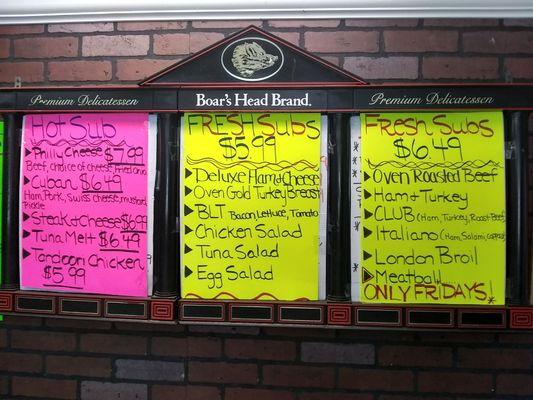 Premium Delicatessen
Boar's Head Brand.
Premium Delicatessen
Hot Sub
Philly Cheese $7.99
Beef, choice of cheese, fried onio
Cuban $6.49
Ham, Pork, Swiss cheese, mustard,
Pickle
Steak & Cheese $6.99
Tuna Melt $6.49
Tandoori Chicken
$5.99
FRESH Subs
$5.99
Deluxe Ham & Cheese
Oven Gold Turkey Breast
BLT Bacon, Lettuce, Tomato
Chicken Salad
Tuna Salad
Egg Salad
Fresh Subs
$6.49
Oven Roasted Beef
Ham & Turkey
CLUB (Ham, Turkey, Roast Beef)
Italiano (Ham, Salami,
London Broil
Meatball
ONLY FRIDAYS!